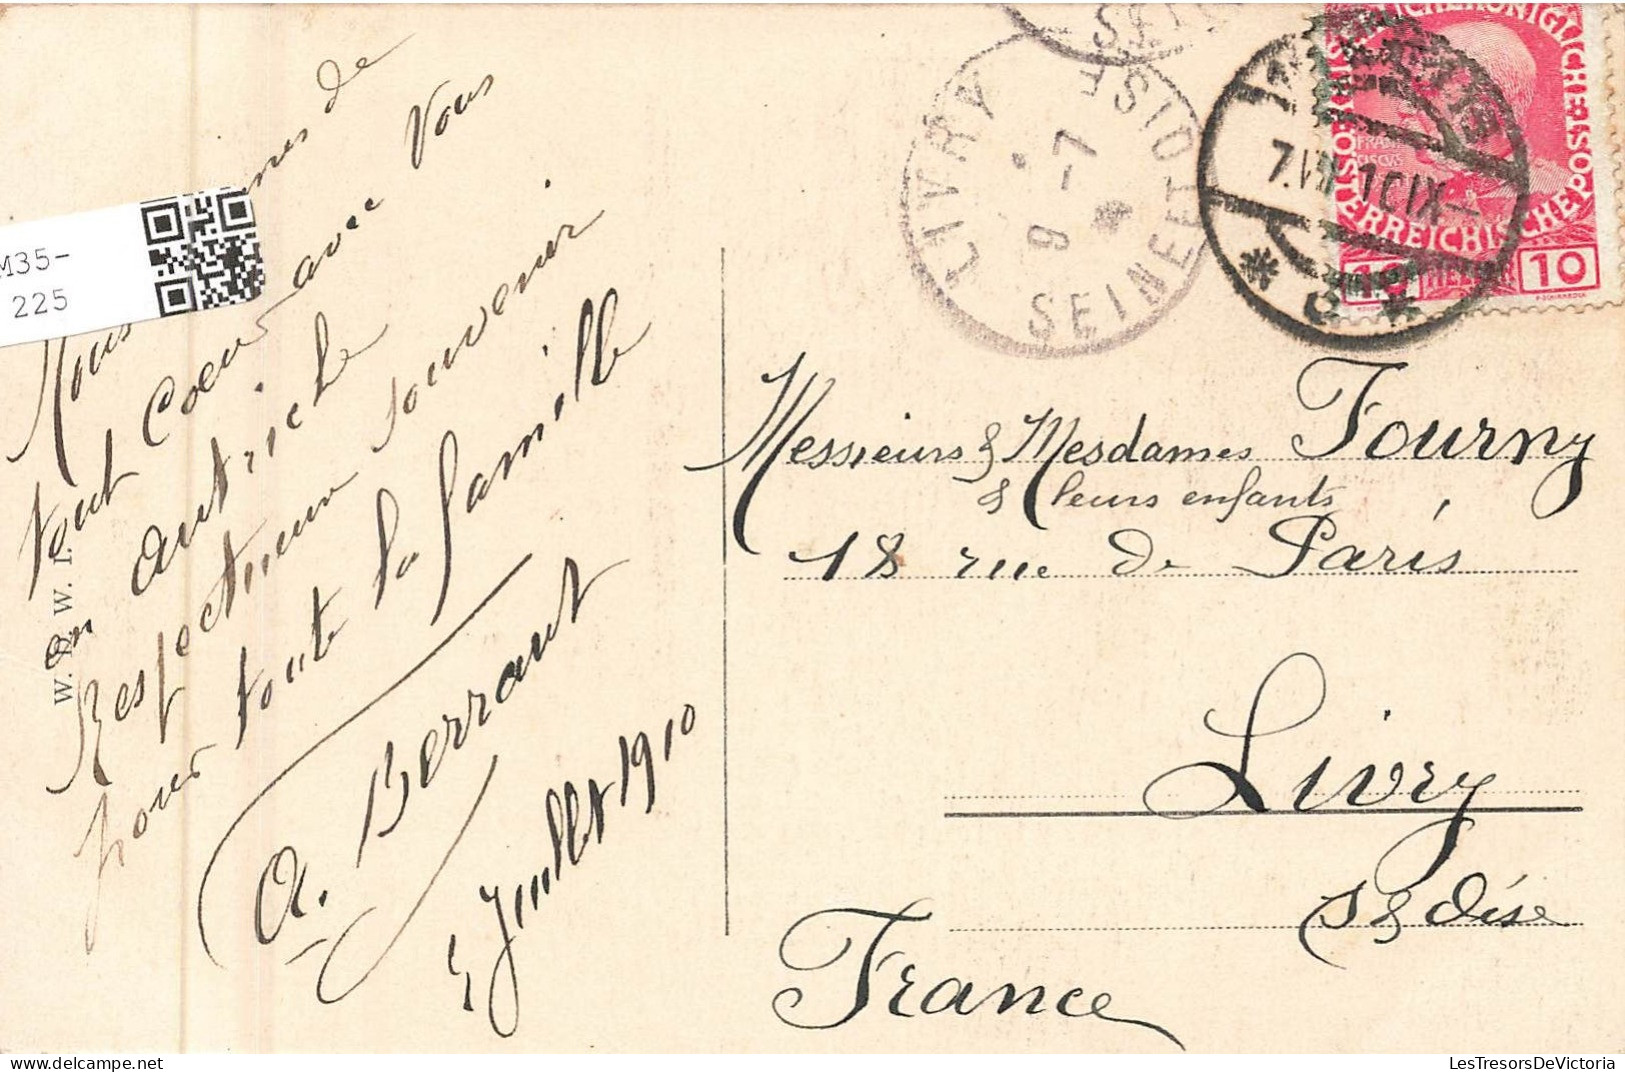 M35-
225
Nous mes de
tout Coeur avec Vous
en Autriche
Respectueux souvenir
pour toute la famille
A. Berraut
5 Juillet 1910
LIVRY
9 -7
SEINE ET OISE
7.VII 10 IX-
FRAN
CISCVS
10 HELLER 10
Messieurs & Mesdames Fourny
& leurs enfants
18 rue de Paris
Livry
S & Oise
France
LesTresorsDeVictoria